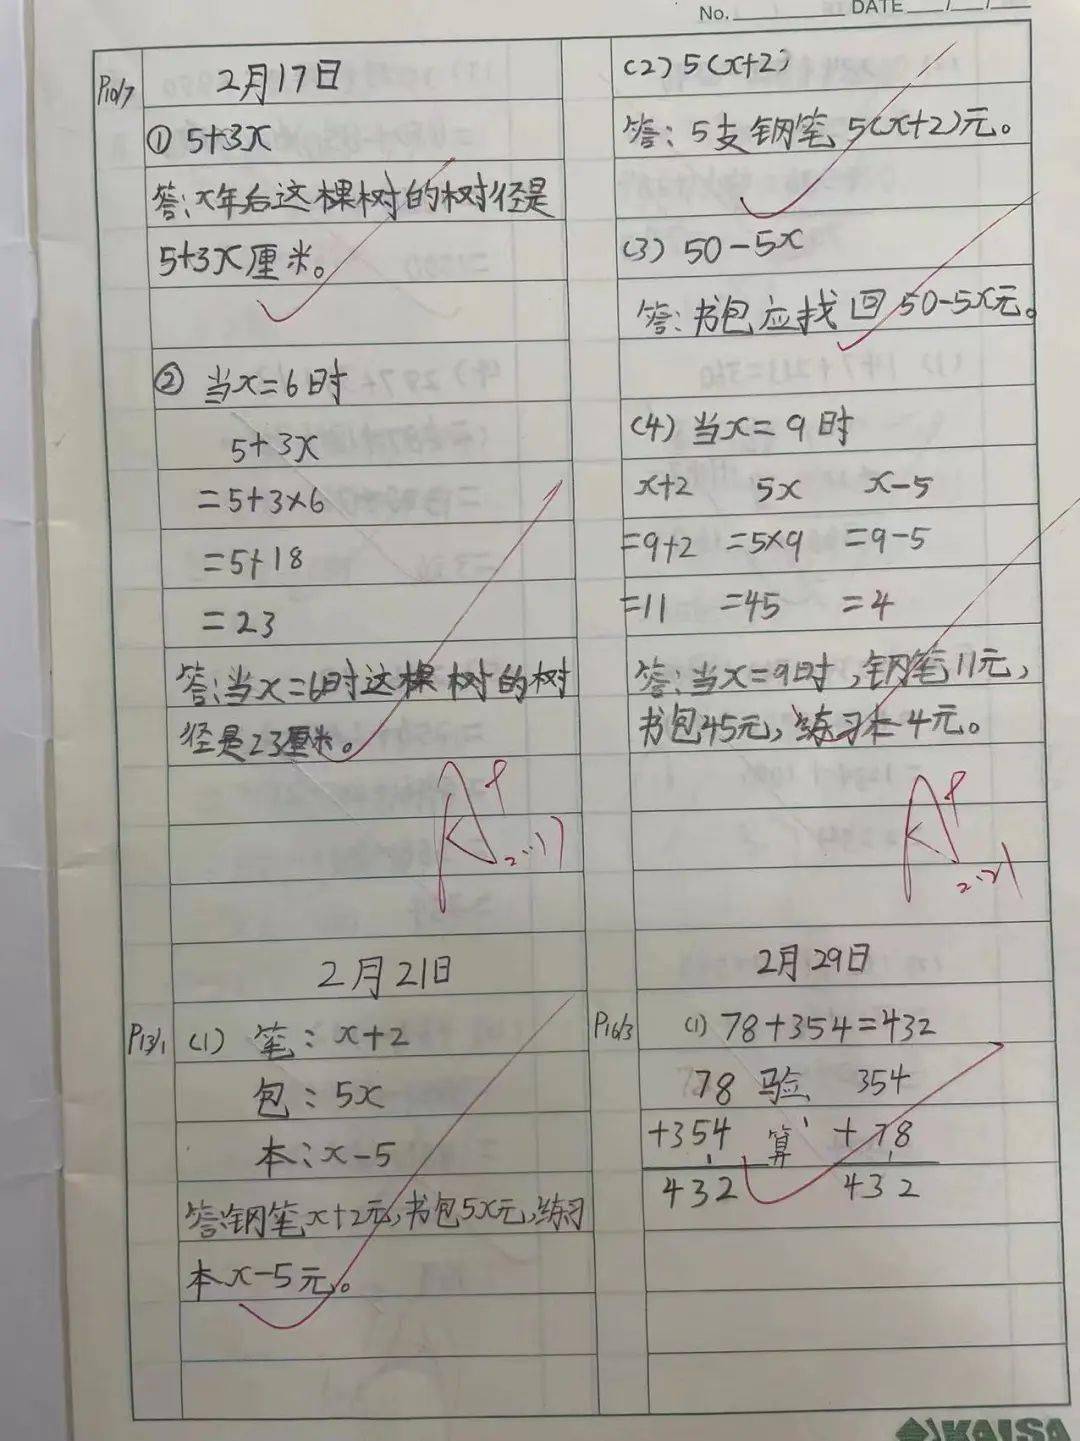 No. DATE / /
P10/7 2月17日
① 5+3x
答:x年后这棵树的树径是
5+3x厘米。
② 当x=6时
5+3x
=5+3×6
=5+18
=23
答:当x=6时这棵树的树
径是23厘米。
2.17
2月21日
P13/1 (1) 笔:x+2
包:5x
本:x-5
答:钢笔x+2元,书包5x元,练习
本x-5元。
(2) 5(x+2)
答:5支钢笔5(x+2)元。
(3) 50-5x
答:书包应找回50-5x元。
(4) 当x=9时
x+2 5x x-5
=9+2 =5×9 =9-5
=11 =45 =4
答:当x=9时,钢笔11元,
书包45元,练习本4元。
2.21
2月29日
P16/3 (1) 78+354=432
78 验 354
+354 算 +78
432 432
KAISA